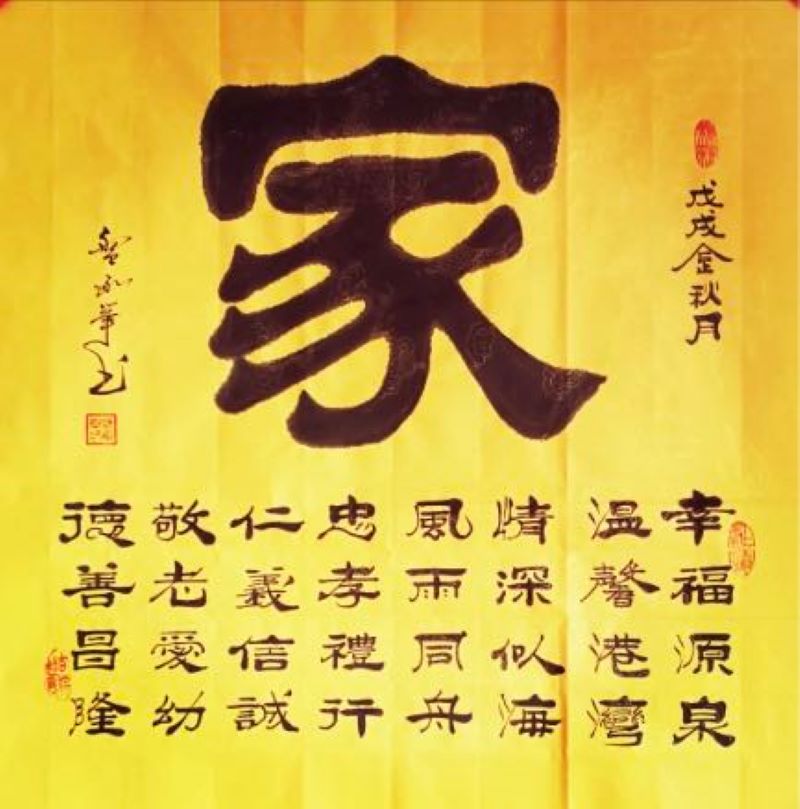 家
戊戌金秋月
幸福源泉
溫馨港灣
情深似海
風雨同舟
忠孝禮行
仁義信誠
敬老愛幼
德善昌隆